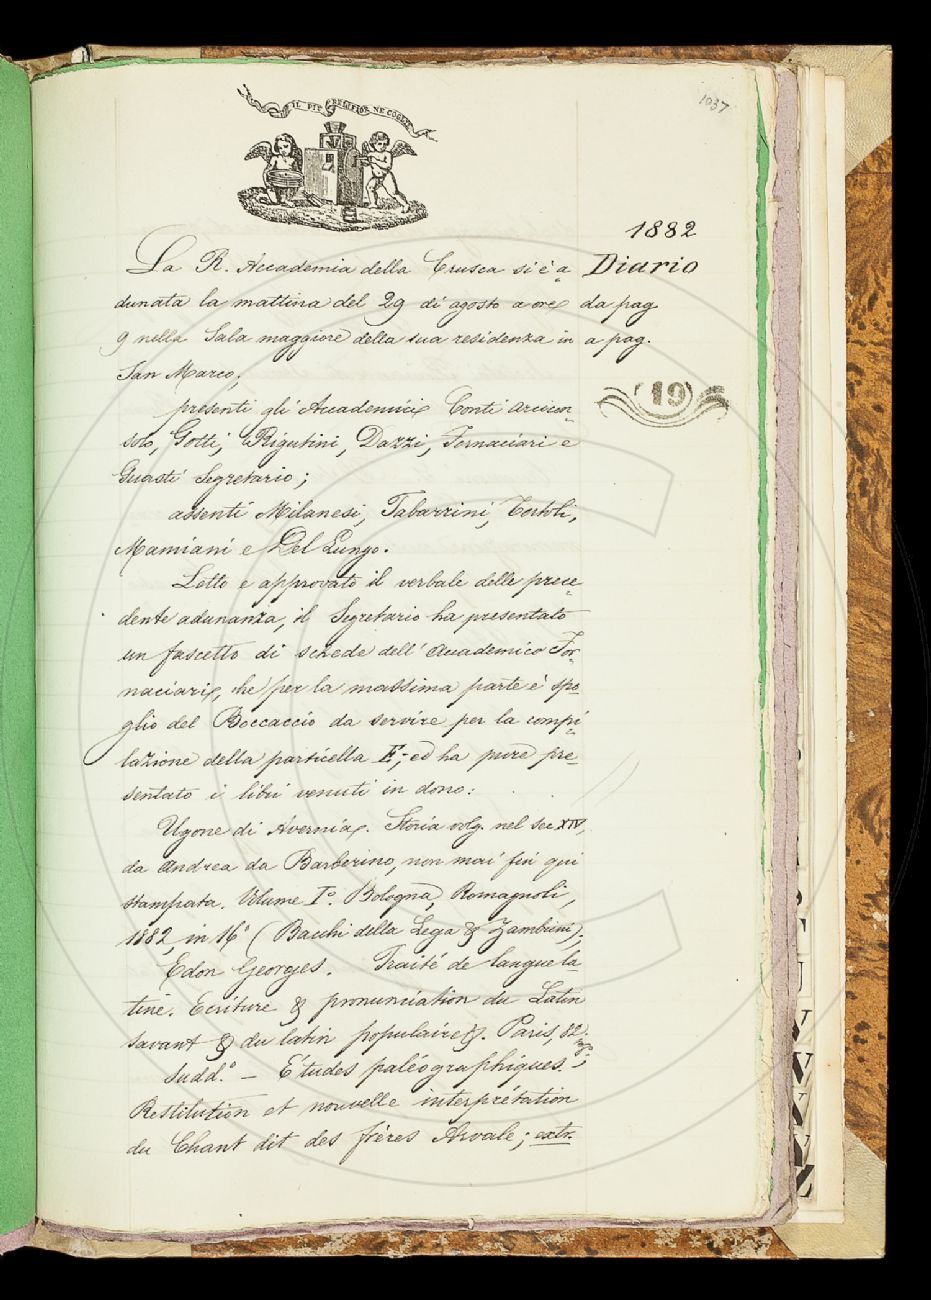 IL PIÙ BEL FIOR NE COGLIE
1037
1882
Diario
da pag
a pag.
19
La R. Accademia della Crusca si è a
dunata la mattina del 29 di agosto a ore
9 nella Sala maggiore della sua residenza in
San Marco;
presenti gli Accademici Conti arcicon
solo, Gotti, Rigutini, Dazzi, Fornaciari e
Guasti Segretario;
assenti Milanesi, Tabarrini, Tortoli,
Mamiani e Del Lungo.
Letto e approvato il verbale delle prece-
dente adunanza, il Segretario ha presentato
un fascetto di schede dell' Accademico For-
naciari, che per la massima parte è spo-
glio del Boccaccio da servire per la compi-
lazione della particella E; ed ha pure pre-
sentato i libri venuti in dono:
Ugone di Avernia. Storia volg. nel sec XIV,
da Andrea da Barberino, non mai fin qui
stampata. Volume I.° Bologna, Romagnoli,
1882, in 16° (Bacchi della Lega & Zambrini).
Edon Georges. Traité de langue la-
tine. Ecriture & prononciation du Latin
savant & du latin populaire &. Paris, 82.
Sudd.° — Études paléographiques.
Restitution et nouvelle interprétation
du Chant dit des frères Arvale; extr.